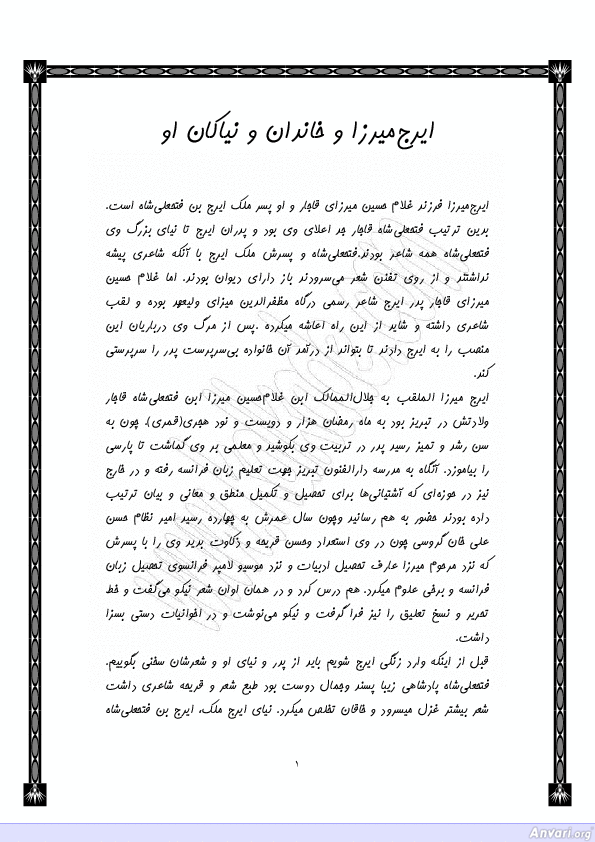 ایرج‌میرزا و خاندان و نیاکان او
ایرج‌میرزا فرزند غلام حسین میرزای قاجار و او پسر ملک ایرج بن فتحعلی‌شاه است.
بدین ترتیب فتحعلی‌شاه قاجار جد اعلای وی بود و پدران ایرج تا نیای بزرگ وی
فتحعلی‌شاه همه شاعر بودند.فتحعلی‌شاه و پسرش ملک ایرج با آنکه شاعری پیشه
نداشتند و از روی تفنن شعر می‌سرودند باز دارای دیوان بودند. اما غلام حسین
میرزای قاجار پدر ایرج شاعر رسمی درگاه مظفرالدین میزای ولیعهد بوده و لقب
شاعری داشته و شاید از این راه اعاشه میکرده .پس از مرگ وی درباریان این
منصب را به ایرج دادند تا بتواند از درآمد آن خانواده بی‌سرپرست پدر را سرپرستی
کند.
ایرج میرزا الملقب به جلال‌الممالک ابن غلام‌حسین میرزا ابن فتحعلی‌شاه قاجار
ولادتش در تبریز بود به ماه رمضان هزار و دویست و نود هجری(قمری). چون به
سن رشد و تمیز رسید پدر در تربیت وی بکوشید و معلمی بر وی گماشت تا پارسی
را بیاموزد. آنگاه به مدرسه دارالفنون تبریز جهت تعلیم زبان فرانسه رفته و در خارج
نیز در حوزه‌ای که آشتیانی‌ها برای تحصیل و تکمیل منطق و معانی و بیان ترتیب
داده بودند حضور به هم رسانید وچون سال عمرش به چهارده رسید امیر نظام حسن
علی خان گروسی چون در وی استعداد وحسن قریحه و ذکاوت بدید وی را با پسرش
که نزد مرحوم میرزا عارف تحصیل ادبیات و نزد موسیو لامپر فرانسوی تحصیل زبان
فرانسه و برخی علوم میکرد. هم درس کرد و در همان اوان شعر نیکو می‌گفت و خط
تحریر و نسخ تعلیق را نیز فرا گرفت و نیکو می‌نوشت و در اخوانیات دستی بسزا
داشت.
قبل از اینکه وارد زنگی ایرج شویم باید از پدر و نیای او و شعرشان سخنی بگوییم.
فتحعلی‌شاه پادشاهی زیبا پسند وجمال دوست بود طبع شعر و قریحه شاعری داشت
شعر بیشتر غزل میسرود و خاقان تخلص میکرد. نیای ایرج ملک، ایرج بن فتحعلی‌شاه
۱
Anvari.org